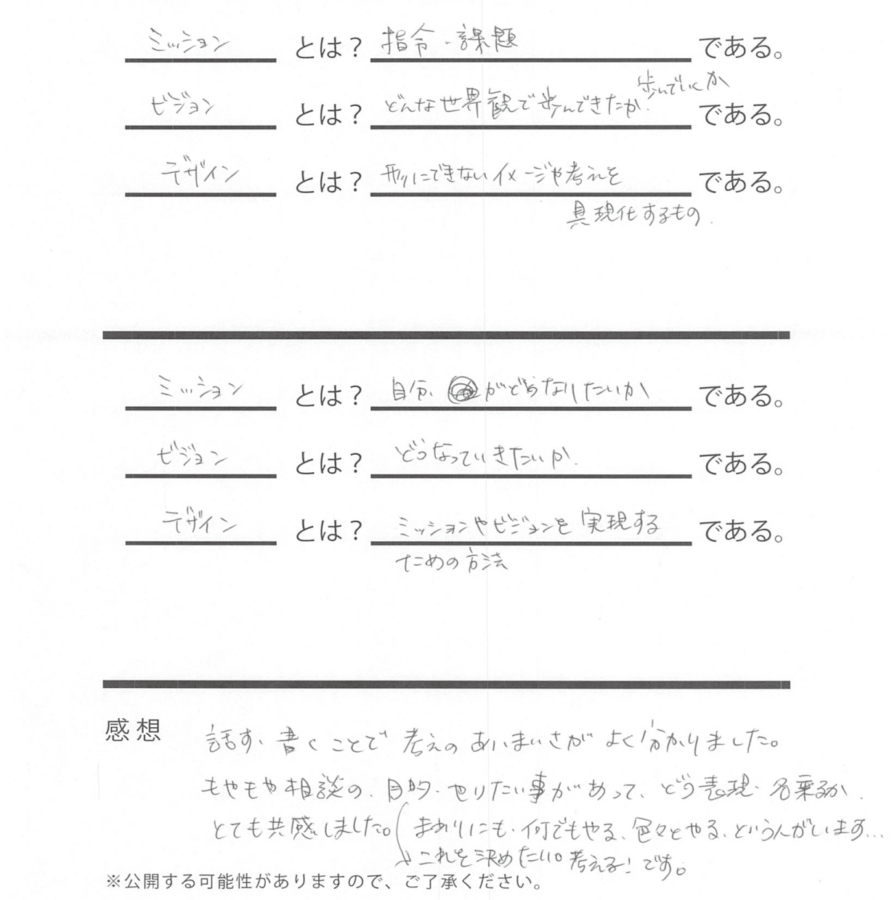 ミッション とは？ 指令・課題 である。
歩んでいくか
ビジョン とは？ どんな世界観で歩んできたか である。
デザイン とは？ 形にできないイメージや考えを である。
具現化するもの.
ミッション とは？ 自分、がどうなりたいか である。
ビジョン とは？ どうなっていきたいか. である。
デザイン とは？ ミッションやビジョンを実現する である。
ための方法
感想
話す、書くことで考えのあいまいさがよく分かりました。
もやもや相談の、目的・やりたい事があって、どう表現・名乗るか、
とても共感しました。(まわりにも、何でもやる、色々とやる、という人がいます…
→これを決めたい。考える！です。
※公開する可能性がありますので、ご了承ください。